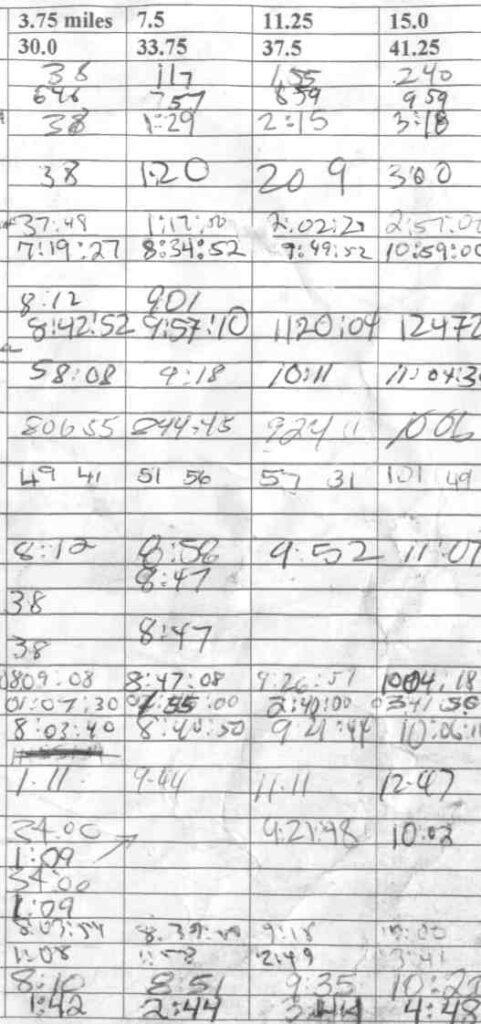 3.75 miles 7.5 11.25 15.0
30.0 33.75 37.5 41.25
38 117 1,55 240
646 757 859 959
38 1:29 2:15 3:18
38 1:20 20 9 300
37:49 2:02:2
7:19:27 8:34:52 9:49:52 10:59:00
8:12 901
8:42:52 9:57:10 1120:04 12472
58:08 9:18 10:11 11:04:3
80655 1006
49 41 51 56 57 31 101 49
8:12 8:58 9:52 11:07
8:47
38
8:47
38
809:08 8:47:08 9:26:57 1004.18
01:07:30 2:40:00
8:03:40 8:44:50 9 21:44 10:06:1
1.11 9.44 11.11 12.47
34.00 9:21:48 10:03
1:09
34:00
1:09
8:03:54 9:18
1:08 2:49 3:41
8:10 8:51 9:35 10:23
1:42 2:44 3:44 4:48